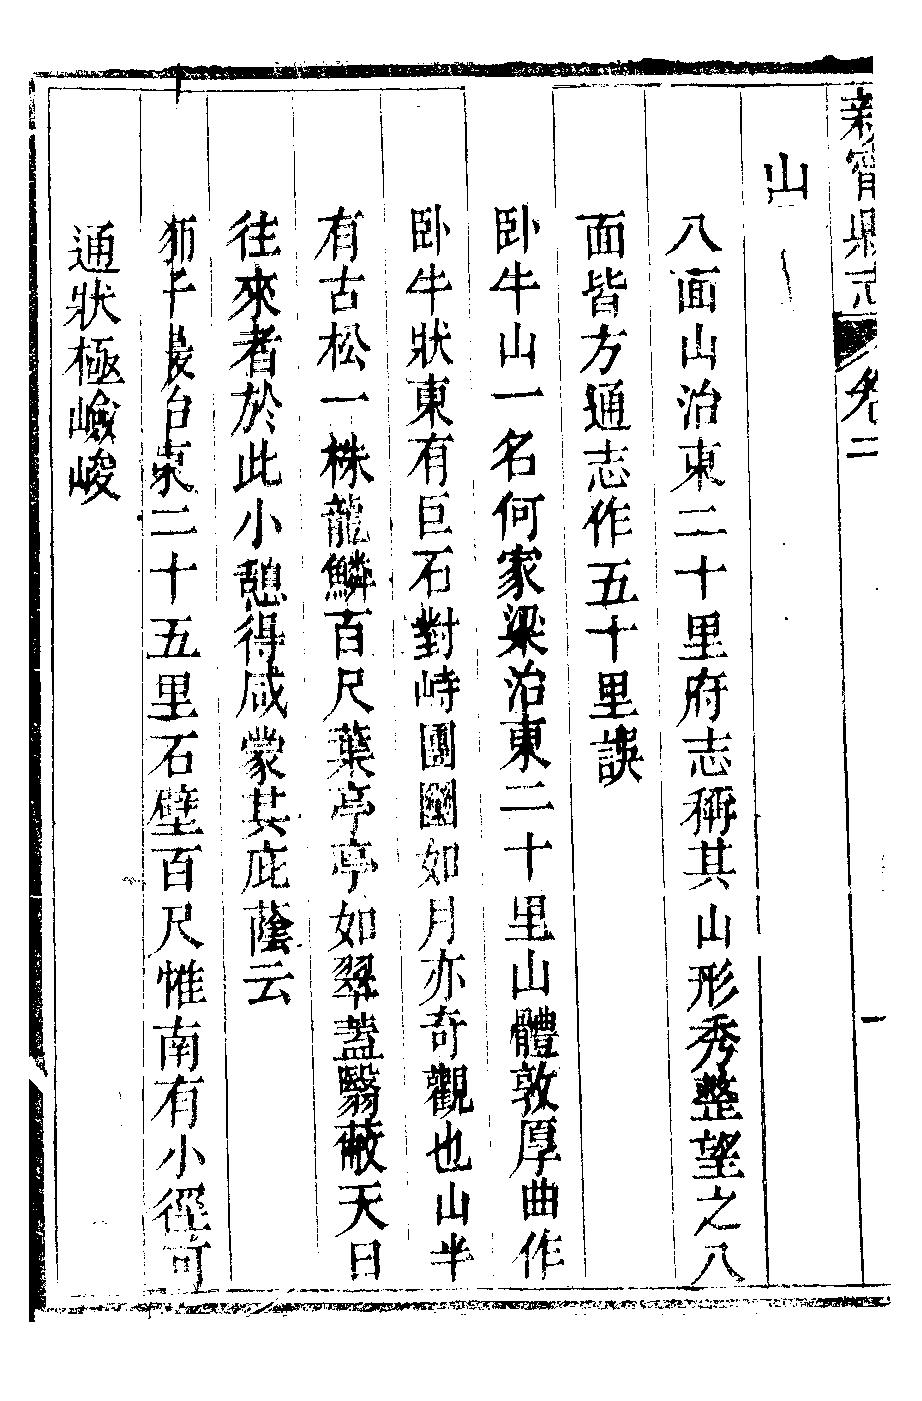 新寧縣志 卷二 一
山
八面山治東二十里府志稱其山形秀整望之八
面皆方通志作五十里誤
卧牛山一名何家梁治東二十里山體敦厚曲作
卧牛狀東有巨石對峙團圞如月亦奇觀也山半
有古松一株龍鱗百尺葉亭亭如翠蓋翳蔽天日
往來者於此小憩得咸蒙其庇蔭云
獅子 治東二十五里石壁百尺惟南有小徑可
通狀極嶮峻